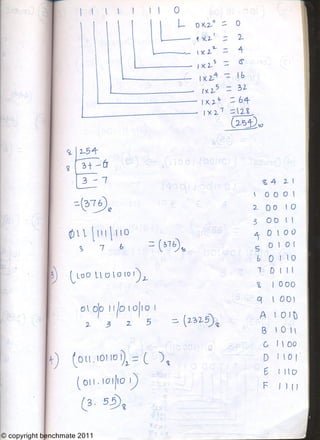 1 1 1 1 1 1 1 0
0x2⁰ = 0
1x2¹ = 2
1x2² = 4
1x2³ = 8
1x2⁴ = 16
1x2⁵ = 32
1x2⁶ = 64
1x2⁷ = 128
(254)₁₀
8 | 254
8 | 31 - 6
3 - 7
= (376)₈
011 | 111 | 110
3 7 6 = (376)₈
3) (10011010101)₂
010/011/010/101
2 3 2 5 = (2325)₈
4) (011.101101)₂ = ( )₈
(011.101/101)
(3. 55)₈
8 4 2 1
1 0 0 0 1
2 0 0 1 0
3 0 0 1 1
4 0 1 0 0
5 0 1 0 1
6 0 1 1 0
7 0 1 1 1
8 1 0 0 0
9 1 0 0 1
A 1 0 1 0
B 1 0 1 1
C 1 1 0 0
D 1 1 0 1
E 1 1 1 0
F 1 1 1 1
© copyright benchmate 2011